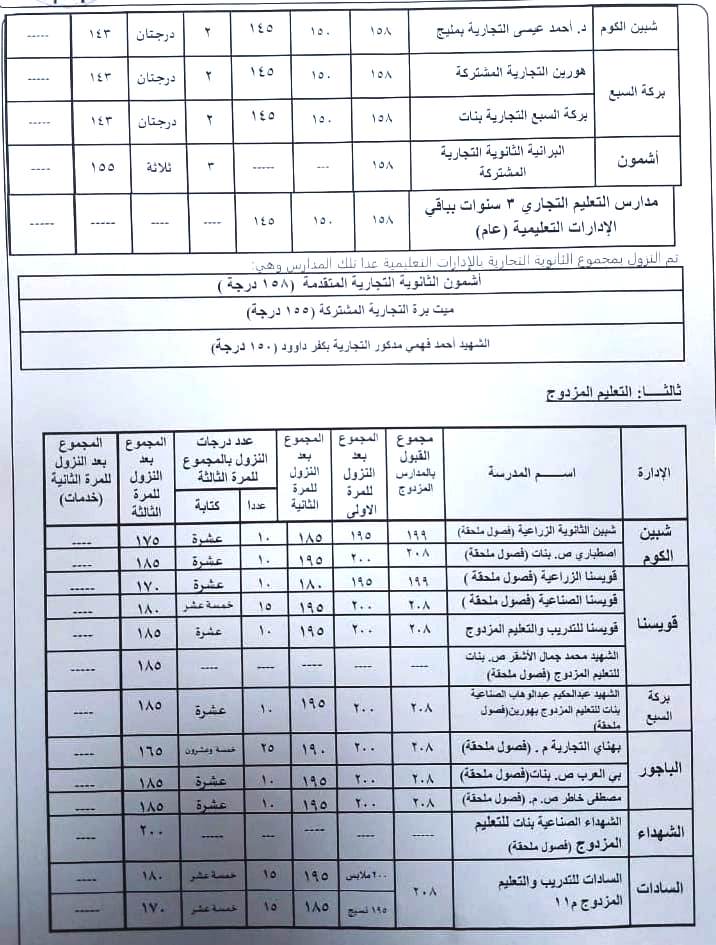 شبين الكوم د. أحمد عيسى التجارية بمليج ١٥٨ ١٥٠ ١٤٥ ٢ درجتان ١٤٣ -----
بركة السبع هورين التجارية المشتركة ١٥٨ ١٥٠ ١٤٥ ٢ درجتان ١٤٣ -----
بركة السبع التجارية بنات ١٥٨ ١٥٠ ١٤٥ ٢ درجتان ١٤٣ -----
أشمون البرانية الثانوية التجارية المشتركة ١٥٨ --- ----- ٣ ثلاثة ١٥٥ ----
مدارس التعليم التجاري ٣ سنوات بباقي الإدارات التعليمية (عام) ١٥٨ ١٥٠ ١٤٥ ---- ---- ----- -----
تم النزول بمجموع الثانوية التجارية بالإدارات التعليمية عدا تلك المدارس وهي:
أشمون الثانوية التجارية المتقدمة (١٥٨ درجة )
ميت برة التجارية المشتركة (١٥٥ درجة)
الشهيد أحمد فهمي مدكور التجارية بكفر داوود (١٥٠ درجة)
ثالثـــا: التعليم المزدوج
الإدارة اســـم المدرسة مجموع القبول بالمدارس المزدوج المجموع بعد النزول للمرة الاولى المجموع بعد النزول للمرة الثانية عدد درجات النزول بالمجموع للمرة الثالثة المجموع بعد النزول للمرة الثالثة المجموع بعد النزول للمرة الثانية (خدمات)
عددا كتابة
شبين الكوم شبين الثانوية الزراعية (فصول ملحقة) ١٩٩ ١٩٥ ١٨٥ ١٠ عشرة ١٧٥ ----
اصطباري ص. بنات (فصول ملحقة) ٢٠٨ ٢٠٠ ١٩٥ ١٠ عشرة ١٨٥ ----
قويسنا قويسنا الزراعية (فصول ملحقة ) ١٩٩ ١٩٥ ١٨٠ ١٠ عشرة ١٧٠ -----
قويسنا الصناعية (فصول ملحقة ) ٢٠٨ ٢٠٠ ١٩٥ ١٥ خمسة عشر ١٨٠ ----
قويسنا للتدريب والتعليم المزدوج ٢٠٨ ٢٠٠ ١٩٥ ١٠ عشرة ١٨٥ -----
الشهيد محمد جمال الأشقر ص. بنات للتعليم المزدوج (فصول ملحقة) ---- ---- ---- ---- ---- ١٨٥ -----
بركة السبع الشهيد عبدالحكيم عبدالوهاب الصناعية بنات للتعليم المزدوج بهورين(فصول ملحقة) ٢٠٨ ٢٠٠ ١٩٥ ١٠ عشرة ١٨٥ ----
الباجور بهناي التجارية م . (فصول ملحقة) ٢٠٨ ٢٠٠ ١٩٠ ٢٥ خمسة وعشرون ١٦٥ ----
بي العرب ص. بنات(فصول ملحقة) ٢٠٨ ٢٠٠ ١٩٥ ١٠ عشرة ١٨٥ ----
مصطفى خاطر ص. م. (فصول ملحقة) ٢٠٨ ٢٠٠ ١٩٥ ١٠ عشرة ١٨٥ ----
الشهداء الشهداء الصناعية بنات للتعليم المزدوج (فصول ملحقة) ----- ---- ---- --- ----- ٢٠٠ ----
السادات السادات للتدريب والتعليم المزدوج م١١ ٢٠٨ ٢٠٠ ملابس ١٩٥ ١٥ خمسة عشر ١٨٠ ----
١٩٥ نسيج ١٨٥ ١٥ خمسة عشر ١٧٠ -----